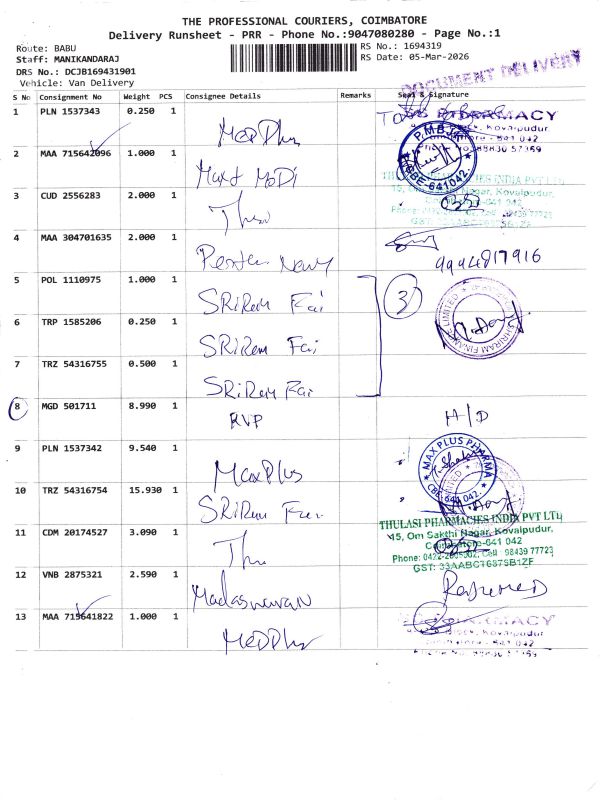 THE PROFESSIONAL COURIERS, COIMBATORE
Delivery Runsheet - PRR - Phone No.:9047080280 - Page No.:1
Route: BABU
RS No.: 1694319
Staff: MANIKANDARAJ
RS Date: 05-Mar-2026
DRS No.: DCJB169431901
DOCUMENT DELIVERY
Vehicle: Van Delivery
S No Consignment No Weight PCS Consignee Details Remarks Seal & Signature
1 PLN 1537343 0.250 1 PHARMACY
Kovaipudur
2 MAA 715642096 1.000 1 P.M.B.J.K CBE-641042.
THULASI PHARMACIES INDIA PVT LTD
3 CUD 2556283 2.000 1
4 MAA 304701635 2.000 1 9994817916
5 POL 1110975 1.000 1 SRiRam Fai 3
6 TRP 1585206 0.250 1 SRiRam Fai SHRIRAM FINANCE LIMITED
7 TRZ 54316755 0.500 1 SRiRam Fai
8 MGD 501711 8.990 1 RVP H/D
9 PLN 1537342 9.540 1 MaxPlus MAX PLUS PHARMA CBE-641 042.
10 TRZ 54316754 15.930 1 SRiRam
THULASI PHARMACIES INDIA PVT LTD
11 CDM 20174527 3.090 1 45, Om Sakthi Nagar, Kovaipudur,
Coimbatore-641 042
Phone: 0422-2605002, Cell : 98439 77723
GST: 33AABCT6875B1ZF
12 VNB 2875321 2.590 1 Returned
13 MAA 715641822 1.000 1 PHARMACY
Kovaipudur